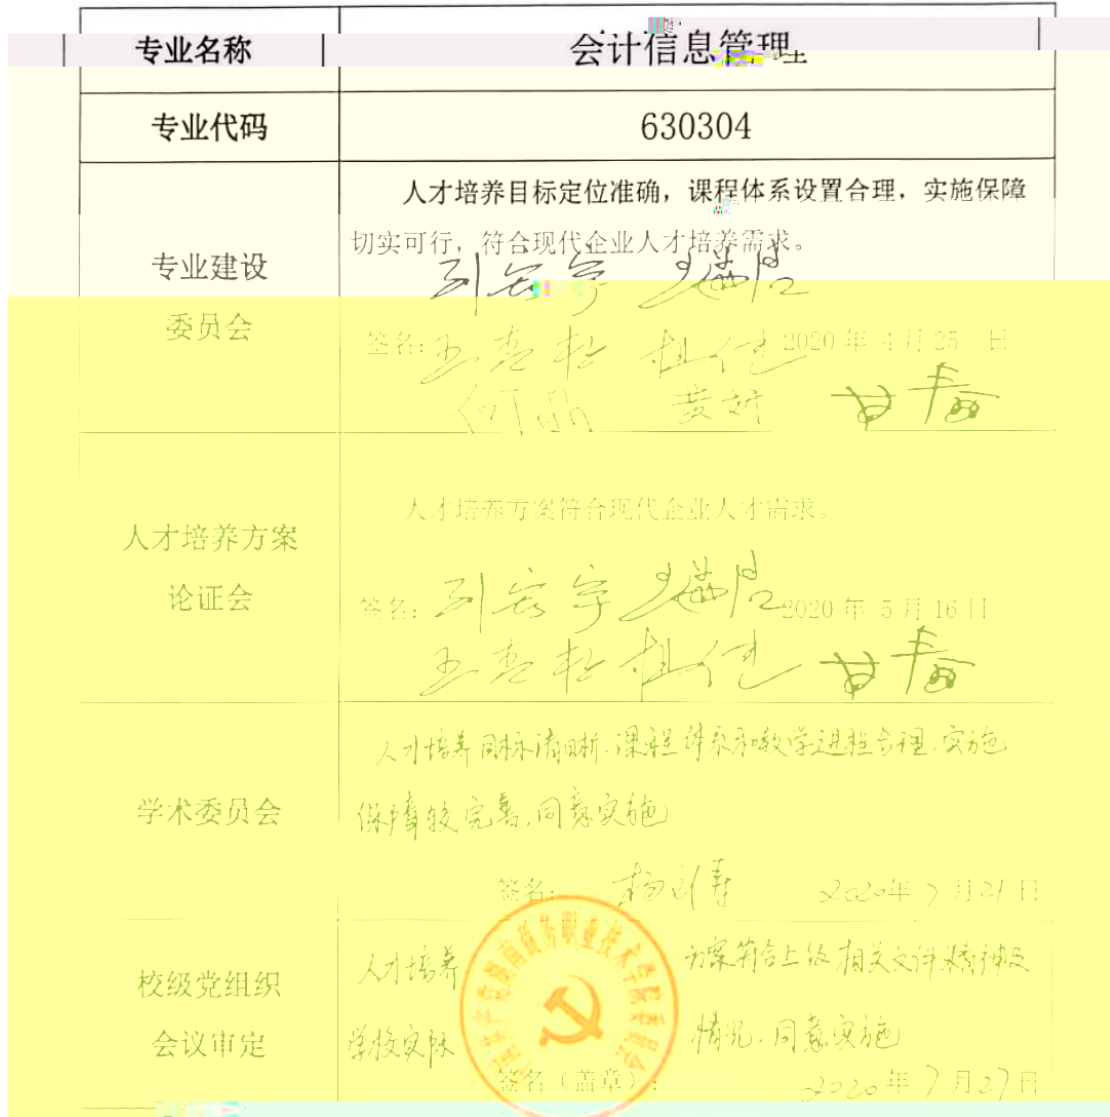 专业名称
会计信息管理
专业代码
630304
专业建设
委员会
人才培养目标定位准确，课程体系设置合理，实施保障
切实可行，符合现代企业人才培养需求。
签名：
2020 年 4 月 25 日
何晶
人才培养方案
论证会
人才培养方案符合现代企业人才需求。
签名：
2020 年 5 月 16 日
学术委员会
人才培养目标清晰，课程体系和教学进程合理，实施
保障较完善，同意实施
签名：
2020年7月21日
校级党组织
会议审定
人才培养方案符合上级相关文件精神及
学校实际情况，同意实施
签名（盖章）：
2020年7月27日
中国共产党湖南商务职业技术学院委员会